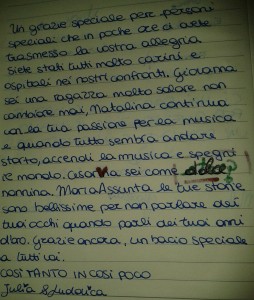 Un grazie speciale per persone
speciali che in poche ore ci avete
trasmesso la vostra allegria
siete stati tutti molto carini e
ospitali nei nostri confronti. Giovanna
sei una ragazza molto solare non
cambiare mai, Natalina continua
con la tua passione per la musica
e quando tutto sembra andare
storto, accendi la musica e spegni
il mondo. sei come
nonnina. Maria Assunta le tue storie
sono bellissime per non parlare dei
tuoi occhi quando parli dei tuoi anni
d'oro. Grazie ancora, un bacio speciale
a tutti voi.
COSÌ TANTO IN COSÌ POCO
Julia & Ludovica